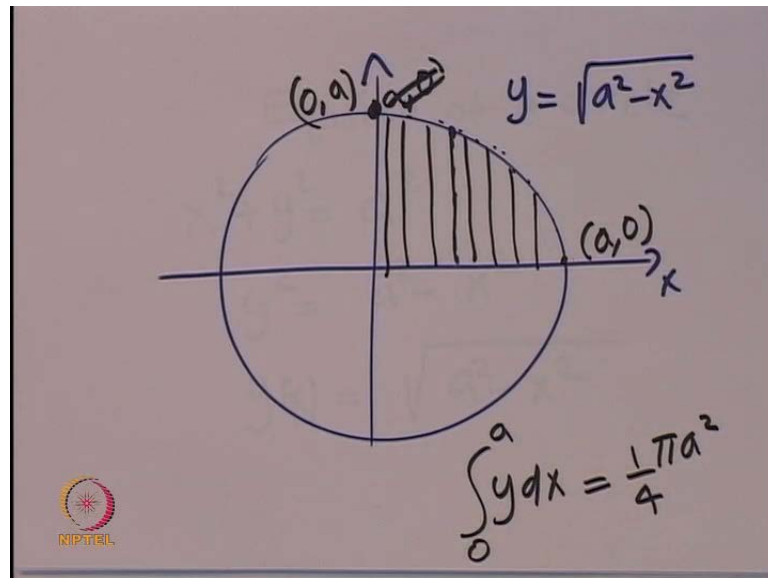 (0,a)
y = √(a²-x²)
(a,0)
x
∫₀ᵃ y dx = 1/4 πa²
NPTEL